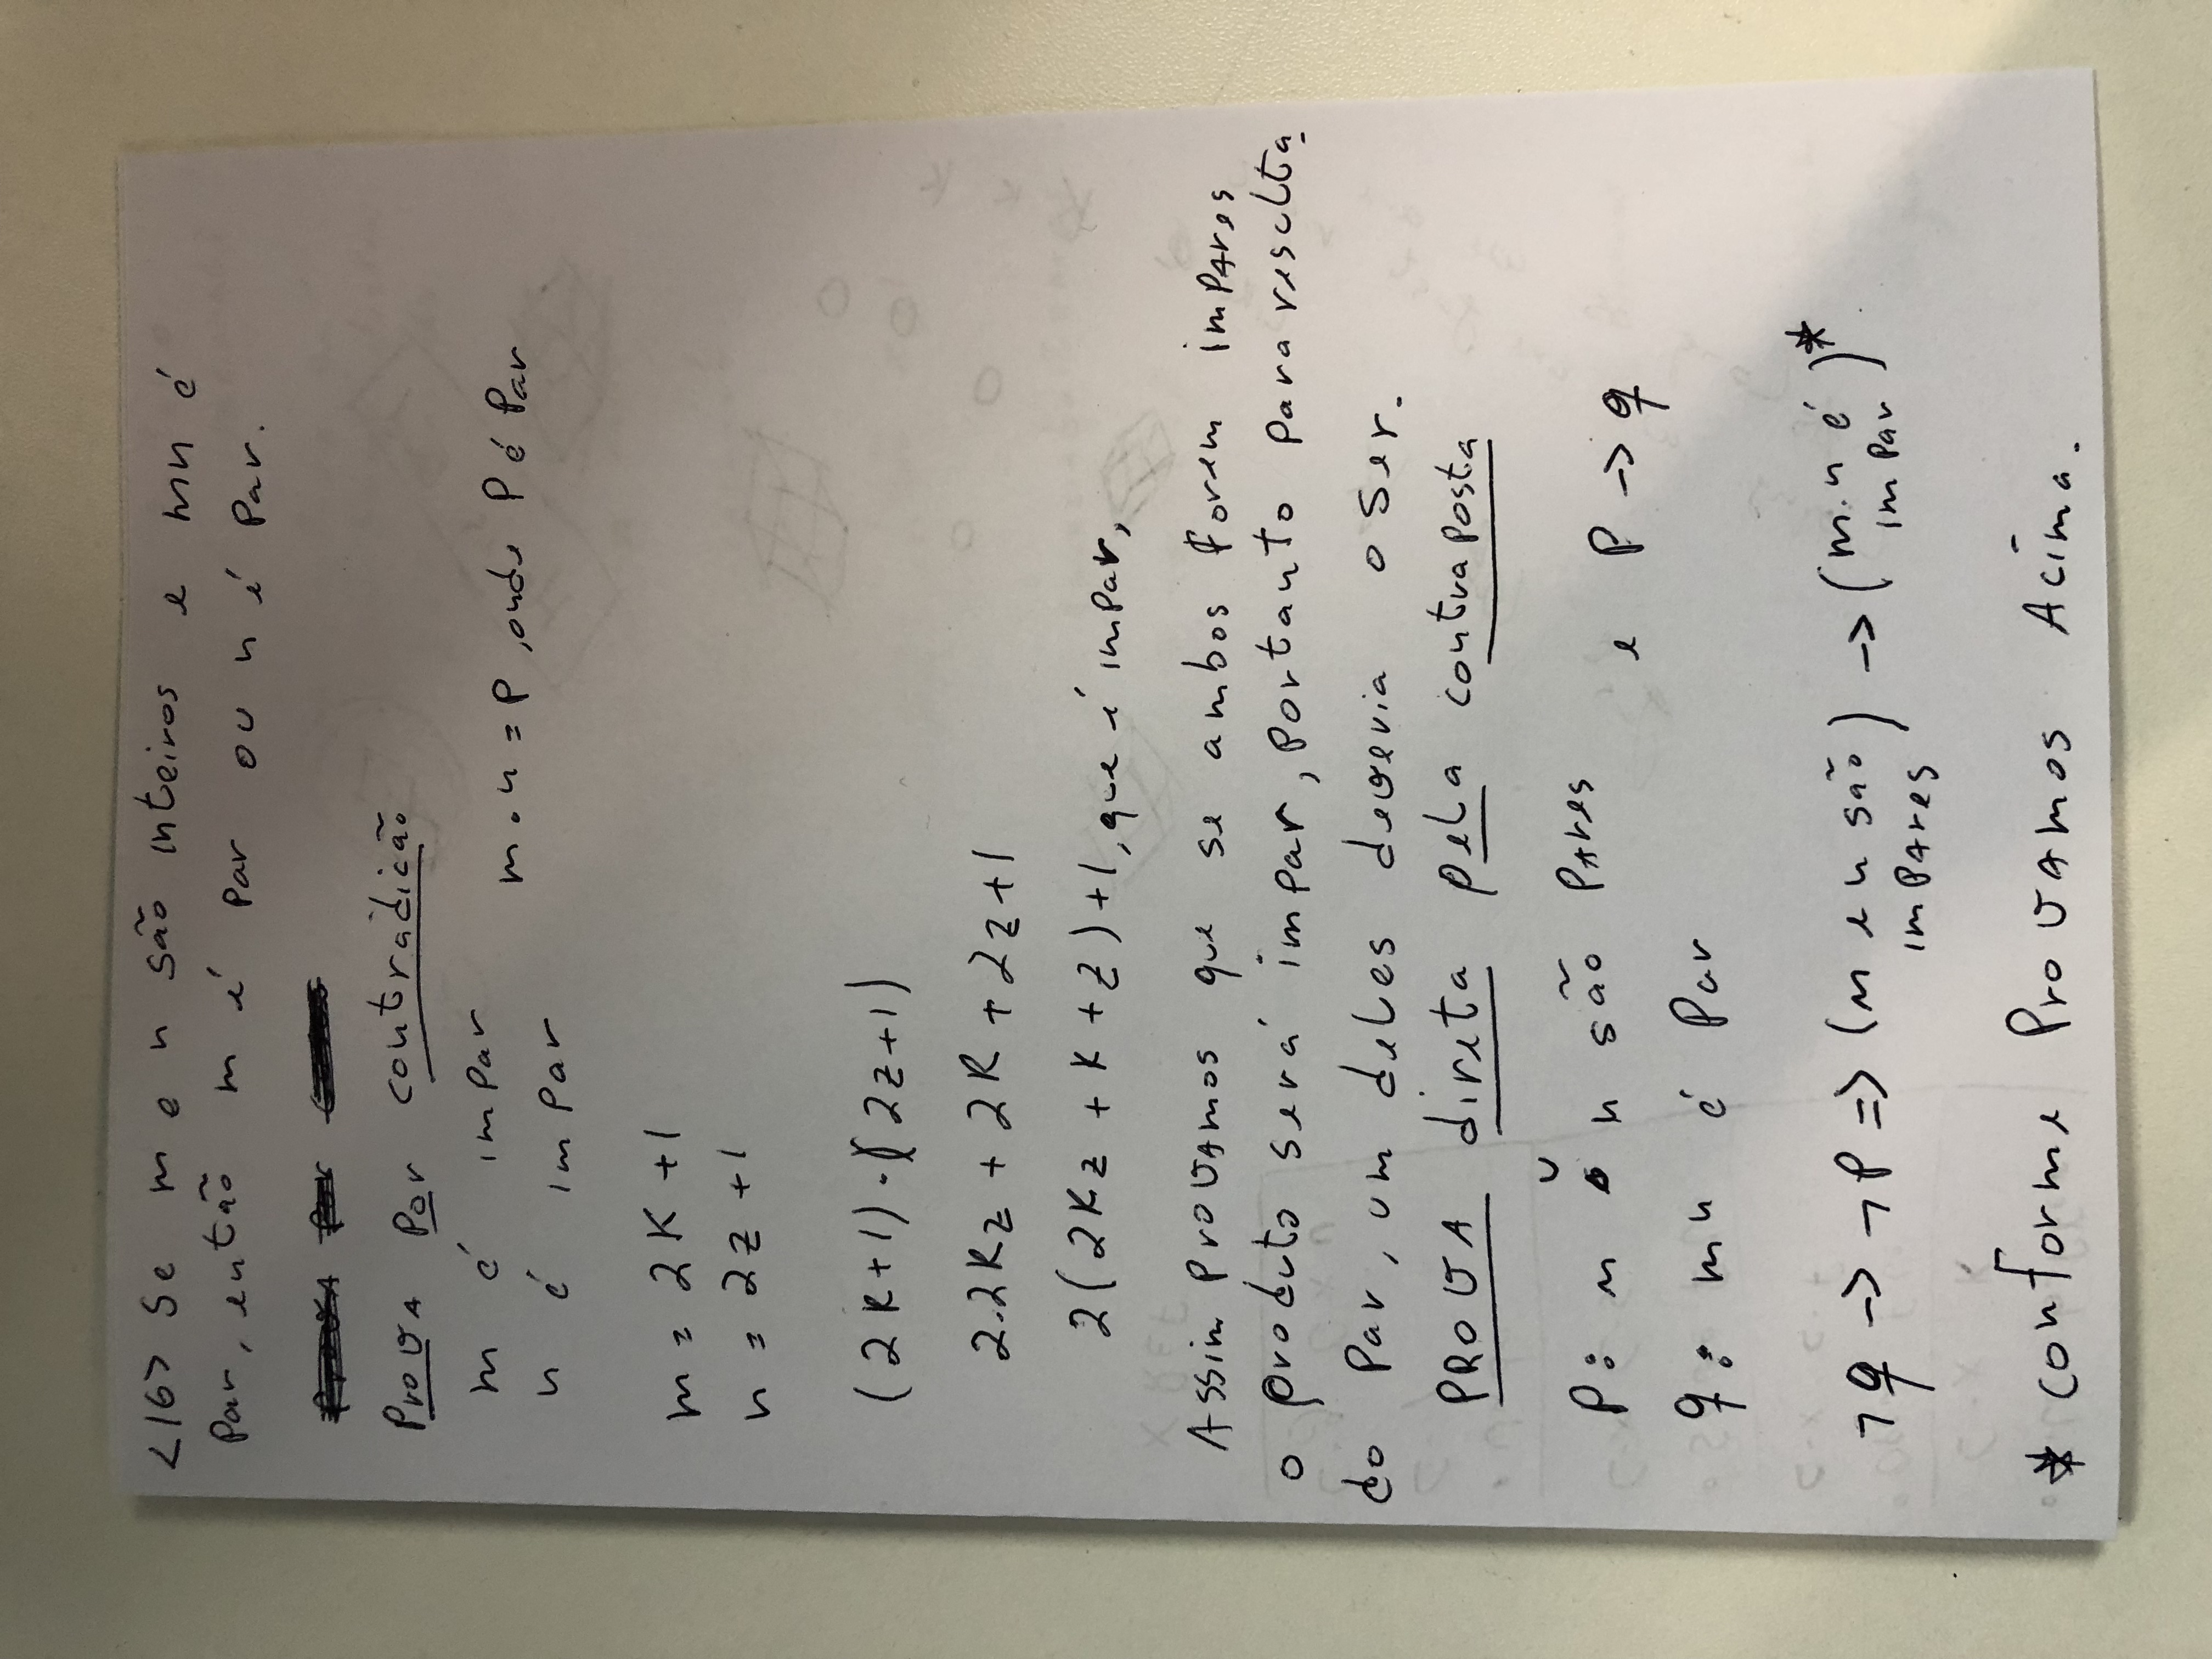 <16> Se m e n são inteiros e mn é
par, então m é par ou n é par.
Prova por contradicão
m é impar
n é impar
m.n = p, onde P é Par
m = 2K +1
n = 2z +1
(2K+1).(2z+1)
2.2Kz + 2K + 2z+1
2(2Kz + K + z)+1, que é impar,
Assim provamos que se ambos forem impares
o produto será impar, portanto para resulta
do par, um deles deveria o ser.
PROVA direta pela contraposta
P: m ou n são Pares
q: mn é Par
e P -> q
¬q -> ¬P => (m e n são impares) -> (m.n é impar)*
* conforme Provamos Acima.